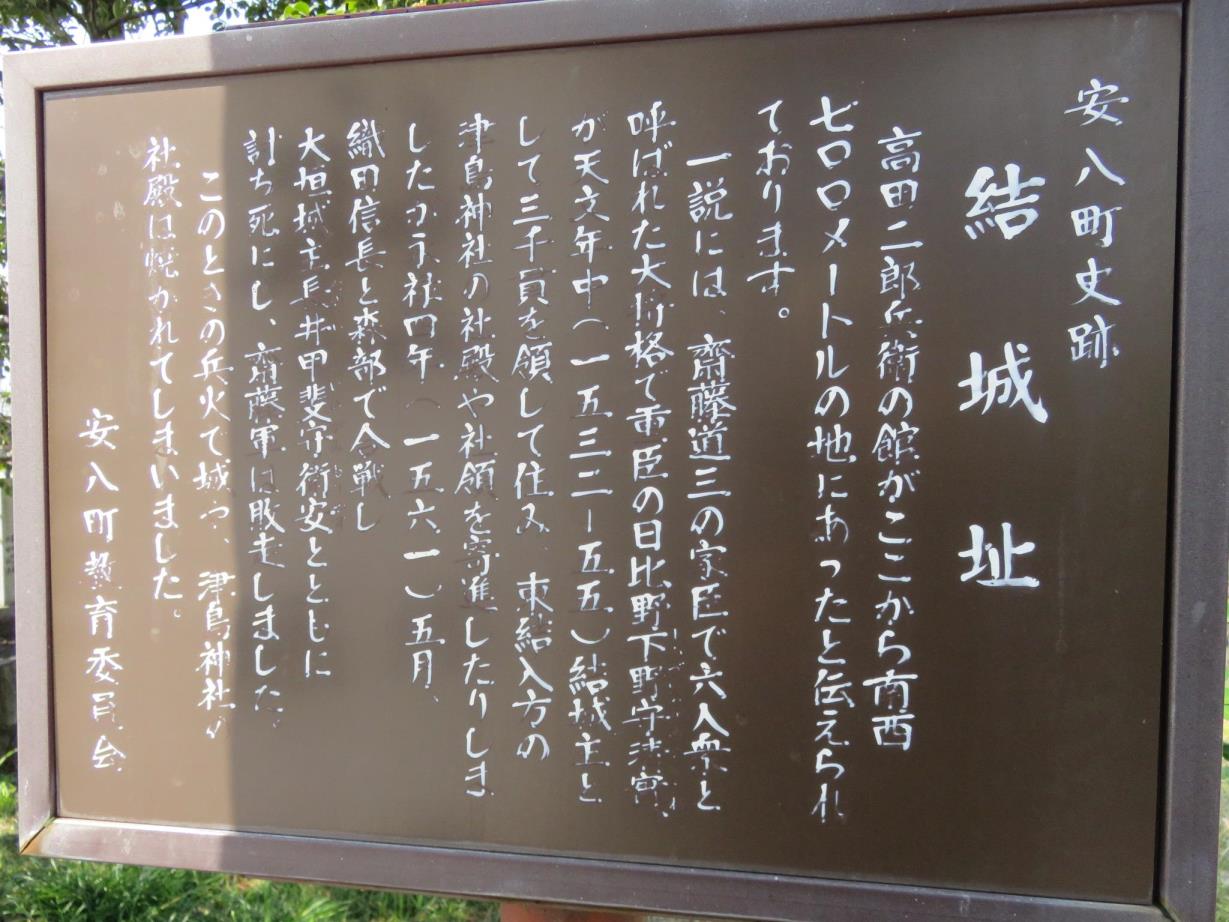 安八町史跡
結城址
高田二郎兵衛の館がここから南西
七〇〇メートルの地にあったと伝えられ
ております。
一説には、齋藤道三の家臣で六人衆と
呼ばれた大将格で重臣の日比野下野守清實、
が天文年中(一五三二―五五)結城主と
して三千貫を領して住み、東結八方の
津島神社の社殿や社領を寄進したりしま
したが永禄四年(一五六一)五月、
織田信長と森部で合戦し
大垣城主長井甲斐守衛安とともに
討ち死にし、齋藤軍は敗走しました。
このときの兵火で城や、津島神社の
社殿は焼かれてしまいました。
安八町教育委員会